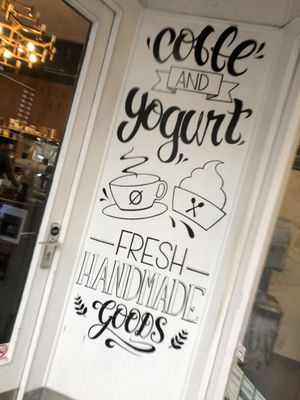 coffee
AND
yogurt
FRESH
HANDMADE
GOODS